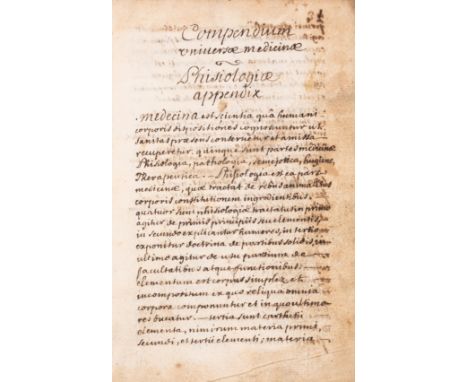 Compendium
universæ medicinæ
Phisiologiæ
appendix
medecina est scientia quâ humani
corporis dispositiones cognoscuntur ut
sanitas præsens conservetur et amissa
recuperetur. quinque sunt partes medicinæ
Phisiologia, pathologia, semejotica, hugiene,
Therapeutica. _ Phisologia est ea pars
medicinæ, quæ tractat de rebus
corporis constitutionem ingredientibus.
quatuor sunt phisiologiæ tractatus in primo
agitur de primis principiis seu elementis,
in secundo explicantur humores, in tertio
exponitur doctrina de partibus solidis, in
ultimo agitur de usu partium de
facultatibus atque functionibus.
elementum est corpus simplex et
incompositum ex quo reliqua omnia
corpora componuntur et in quo ultimo
resolvuntur. _ tertia sunt carthesii
elementa, nimirum materia primi,
secundi, et tertii elementi; materia